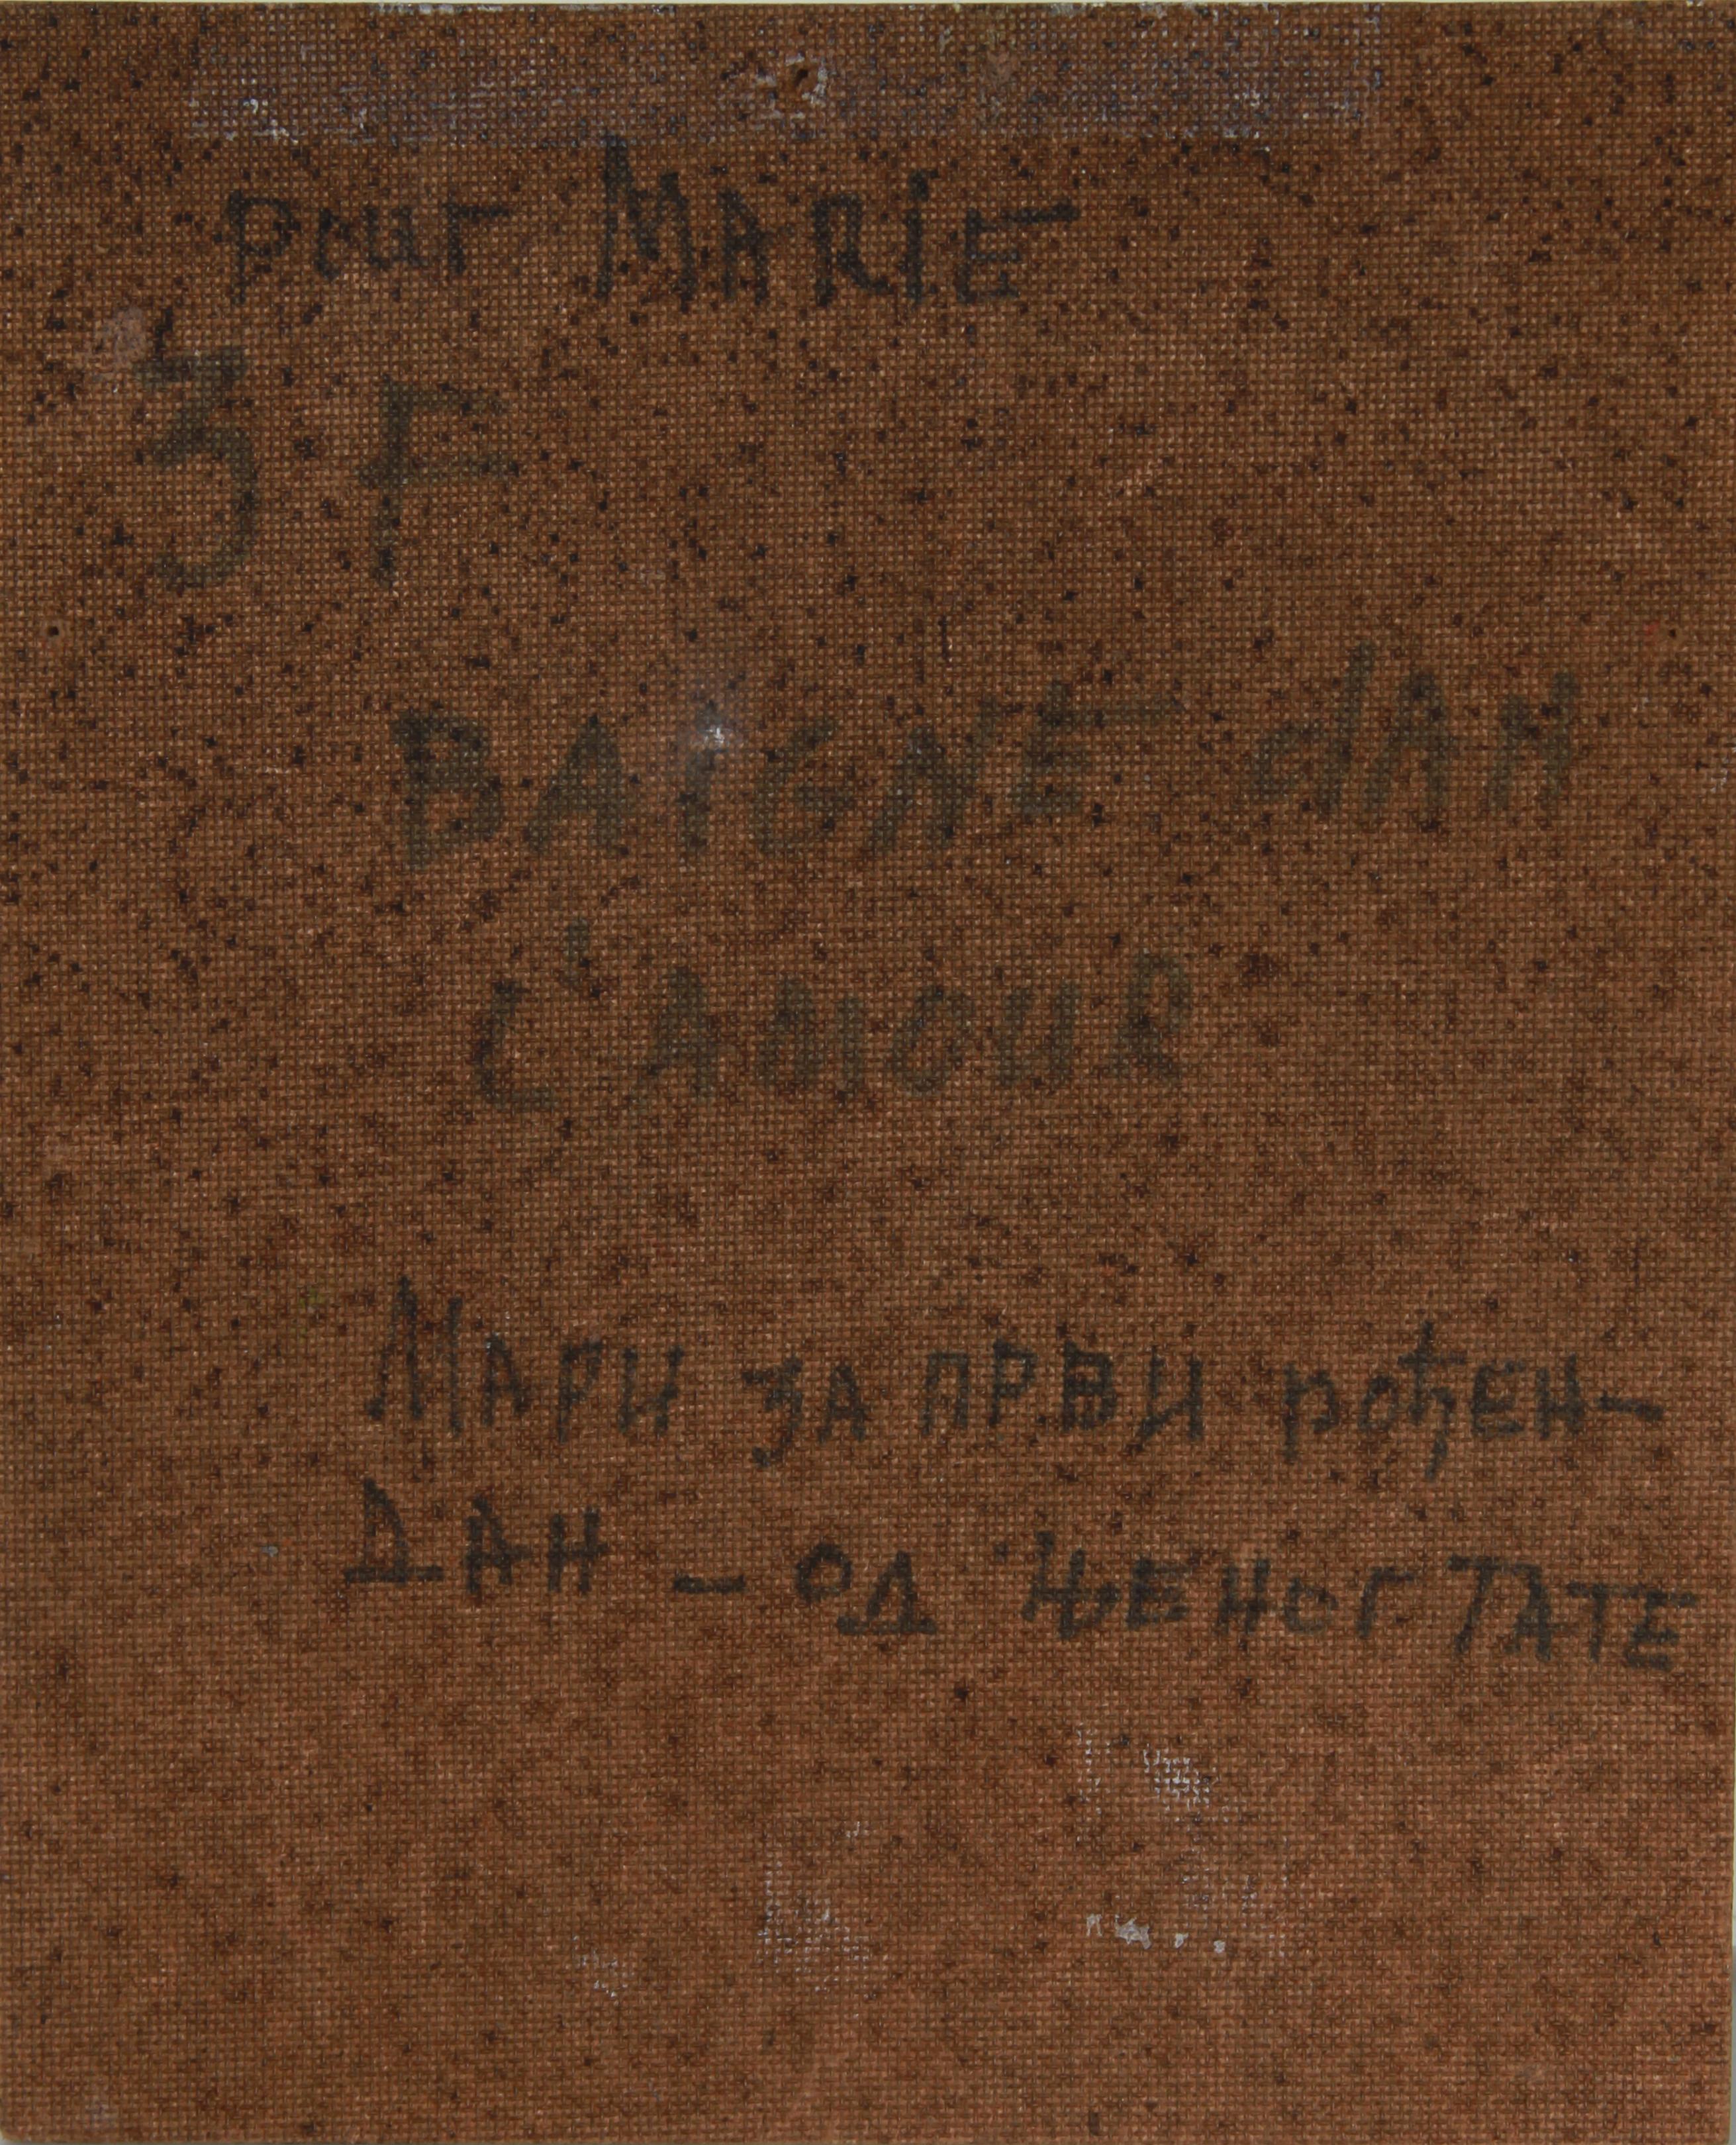 pour MARIE
3 F
BAIGNE dAN
L'AMOUR
МАРИ ЗА ПРВИ рођЕН-
ДАН - ОД ЊЕНОГ ТАТЕ